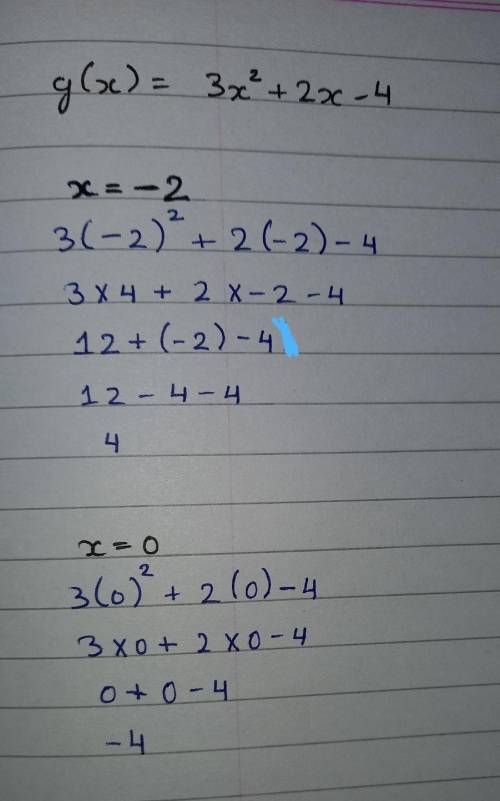 g(x) = 3x² + 2x - 4
x = -2
3(-2)² + 2(-2) - 4
3 × 4 + 2 × -2 - 4
12 + (-2) - 4
12 - 4 - 4
4
x = 0
3(0)² + 2(0) - 4
3 × 0 + 2 × 0 - 4
0 + 0 - 4
-4